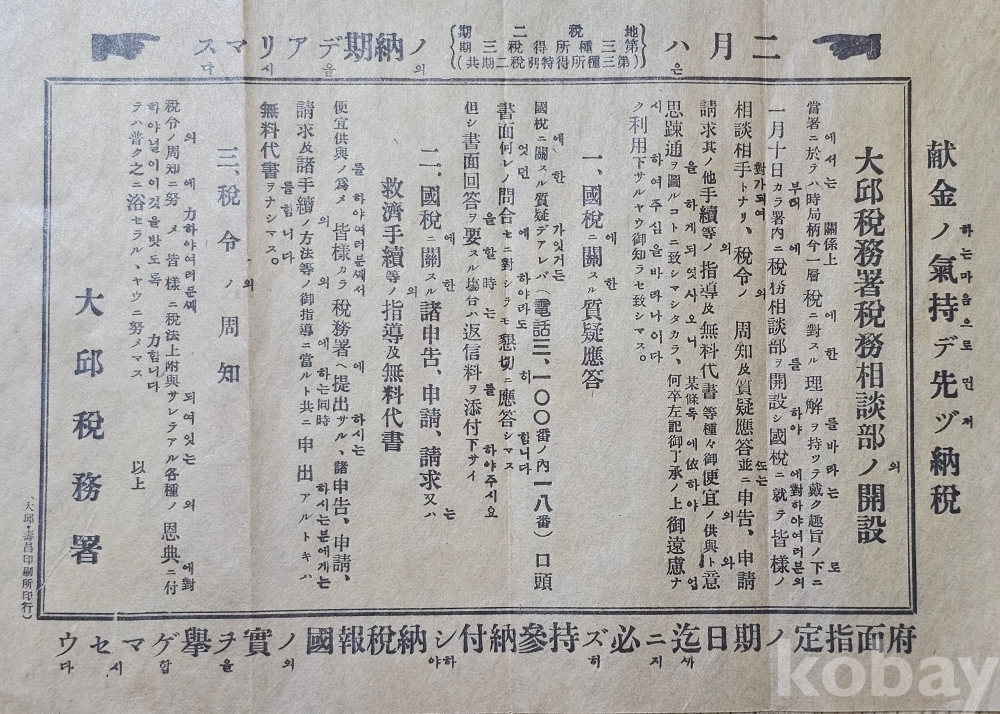 二月ハ は은
地税二期
第三種所得税三期
(第三種所得特別税二期共)
ノ納期デアリマス
의 을 시 다
献金ノ氣持デ先ヅ納税
하는마음으로먼저
大邱税務署税務相談部ノ開設
의
當署ニ於テハ時局柄今一層税ニ對スル理解ヲ持ツテ戴ク趣旨ノ下ニ
에서는 關係上 에한 를바라는 로
一月十日カラ署内ニ税務相談部ヲ開設シ國税ニ就テ皆樣ノ
부터 에 를 하야 에對하야여러분의
相談相手トナリ、税令ノ周知及質疑應答並ニ申告、申請
對가되여 의 또는
請求其ノ他手續等ノ指導及無料代書等種々御便宜ノ供與ト意
의 의 와
思疎通ヲ圖ルコトニ致シマシタカラ、何卒左記御了承ノ上御遠慮ナ
을 하게되엿사오니 某條록 에依하야 업
ク利用下サルヤウ御知ラセ致シマス。
시 하여주심을바라나이다
一、國税ニ關スル質疑應答
에 한
國税ニ關スル質疑デアレバ(電話三、一〇〇番ノ内一八番)口頭
에한 가잇거든
書面何レノ問合セニ對シテモ懇切ニ應答シマス
엇던 에 하야라도 히 합니다
但シ書面回答ヲ要スル場合ハ返信料ヲ添付下サイ
을 할時는 를 하야주시요
二、國税ニ關スル諸申告、申請、請求又ハ
에 한 는
救濟手續等ノ指導及無料代書
의
便宜供與ノ爲メ皆樣カラ税務署ヘ提出サル、諸申告、申請、
를하야여러분께서 에 하시는
請求及諸手續ノ方法等ノ御指導ニ當ルト共ニ申出アルトキハ
의 의 에하는同時 하시는분에게는
無料代書ヲナシマス。
를합니다
三、税令ノ周知
의
税令ノ周知ニ努メ皆樣ニ税法上附與サレテアル各種ノ恩典ニ付
의 에 力하야여러분께 되여잇는 의 에對
テハ普ク之ニ浴セラル、ヤウニ努メマス
하야널이이것을밧도록 力합니다
以上
大邱税務署
(大邱・壽昌印刷所印行)
府面指定ノ期日迄ニ必ズ持參納付シ納税報國ノ實ヲ擧ゲマセウ
까지 히 하야 의 을 합시다
kobay